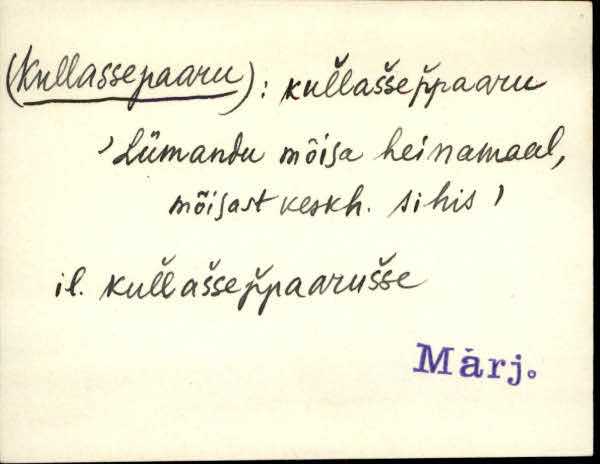 (Kullassepaaru): kul̆lašsep̆paaru
'Lümandu mõisa heinamaal,
mõisast keskh. sihis'
il. kul̆lašsep̆paarušse
Märj.